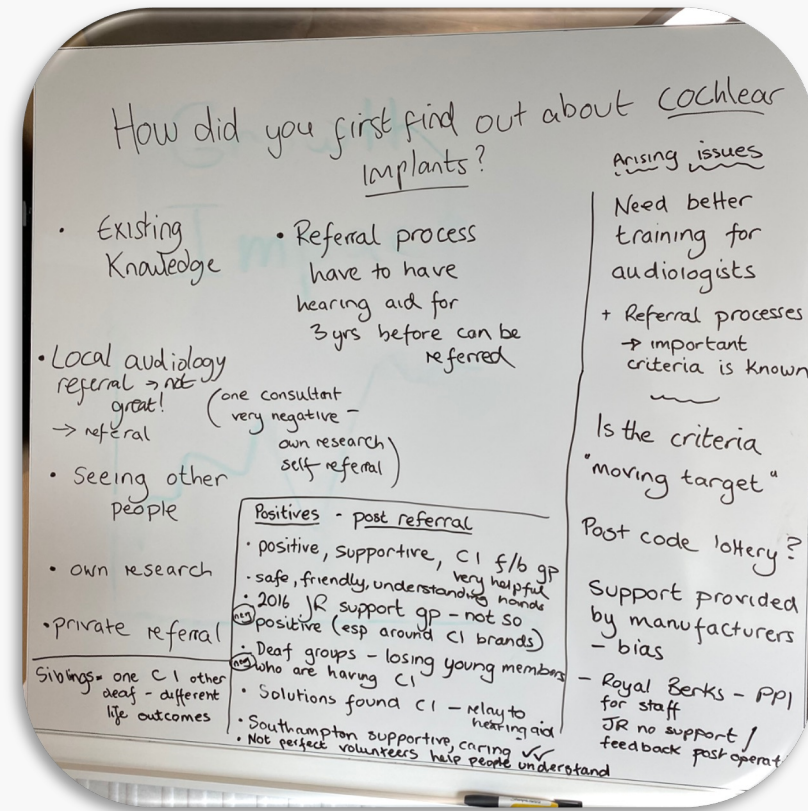 How did you first find out about cochlear
implants?
• Existing
Knowledge
• Local audiology
referral → not
great!
→ referal
(one consultant
very negative –
own research
self referral)
• Seeing other
people
• own research
• private referral
Siblings = one CI other
deaf – different
life outcomes
• Referral process
have to have
hearing aid for
3 yrs before can be
referred
Positives - post referral
• positive, supportive, CI f/b gp
very helpful
• safe, friendly, understanding hands
• 2016 JR support gp – not so
(neg) positive (esp around CI brands)
• Deaf groups – losing young members
(neg) who are having CI
• Solutions found CI – relay to
hearing aid
• Southampton supportive, caring ✓✓
• Not perfect volunteers help people understand
Arising issues
Need better
training for
audiologists
+ Referral processes
→ important
criteria is known
Is the criteria
"moving target"
Post code lottery?
Support provided
by manufacturers
– bias
– Royal Berks – PPI
for staff
JR no support /
feedback post operat